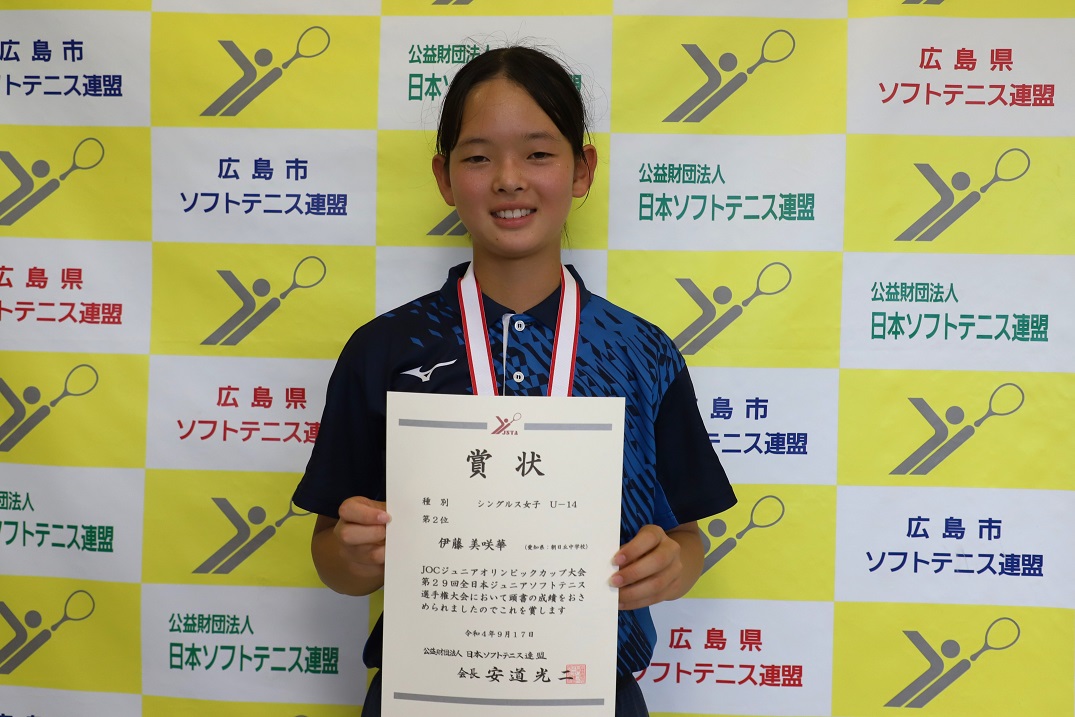 広島市
ソフトテニス連盟
公益財団法人
日本ソフトテニス連盟
広島県
ソフトテニス連盟
広島市
ソフトテニス連盟
公益財団法人
日本ソフトテニス連盟
広島県
ソフトテニス連盟
公益財団法人
日本ソフトテニス連盟
広島県
ソフトテニス連
島市
ソフトテニス連盟
公益財団法人
日本ソフトテニス連盟
広島市
ソフトテニス連盟
公益財団法人
日本ソフトテニス連盟
広島県
ソフトテニス連盟
JSTA
賞状
種別 シングルス女子 U-14
第2位
伊藤 美咲華 (愛知県:朝日丘中学校)
JOCジュニアオリンピックカップ大会
第29回全日本ジュニアソフトテニス
選手権大会において頭書の成績をおさ
められましたのでこれを賞します
令和4年9月17日
公益財団法人 日本ソフトテニス連盟
会長 安道光二